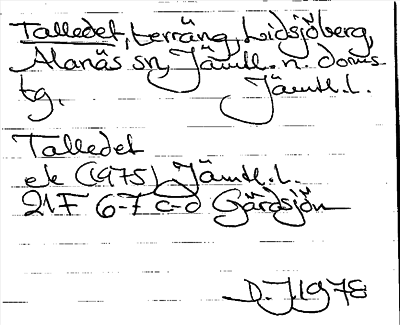 Talledet, terräng, Lidsjöberg,
Alanäs sn, Jämtl. n. doms
tg. Jämtl. l.
Talledet
ek (1975) Jämtl. l.
21F 6-7 c-d Gärdsjön
D. J. 1978